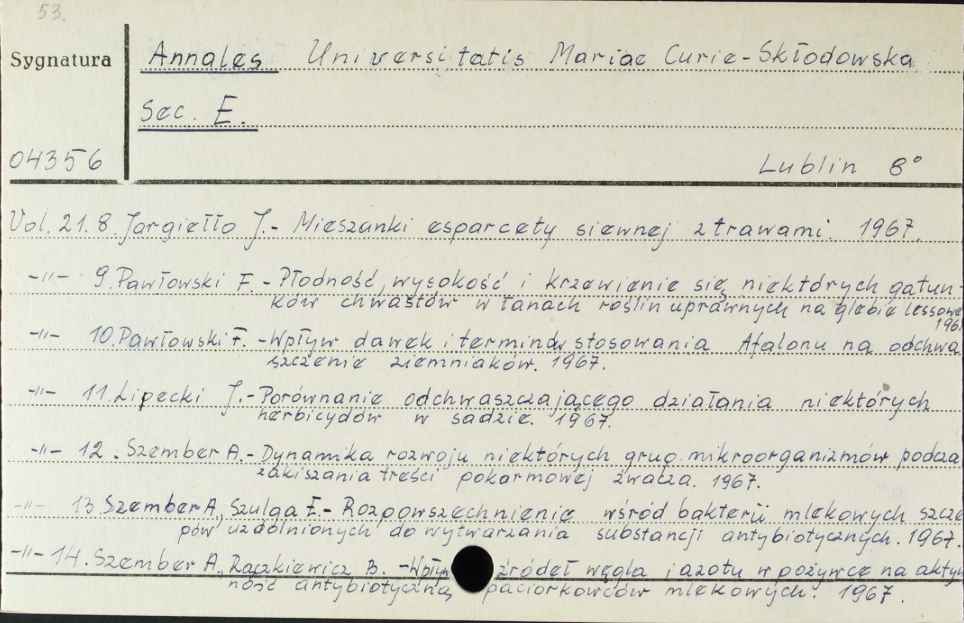 53.
Sygnatura Annales Universitatis Mariae Curie-Skłodowska
Sec. E.
04356 Lublin 8°
Vol. 21. 8. Jargiełło J. - Mieszanki esparcety siewnej z trawami. 1967.
-"- 9. Pawłowski F. - Płodność, wysokość i krzewienie się niektórych gatun-
ków chwastów w łanach roślin uprawnych na glebie lessowe
196
-"- 10. Pawłowski F. - Wpływ dawek i terminów stosowania Afalonu na odchwa
szczenie ziemniaków. 1967.
-"- 11. Lipecki J. - Porównanie odchwaszczającego działania niektórych
herbicydów w sadzie. 1967.
-"- 12. Szember A. - Dynamika rozwoju niektórych grup mikroorganizmów podcza
zakiszania treści pokarmowej żwacza. 1967.
-"- 13. Szember A, Szulga E. - Rozpowszechnienie wśród bakterii mlekowych szcze
pów uzdolnionych do wytwarzania substancji antybiotycznych. 1967.
-"- 14. Szember A., Rączkiewicz B. - Wpływ źródeł węgla i azotu w pożywce na aktyw
ność antybiotyczną paciorkowców mlekowych. 1967.